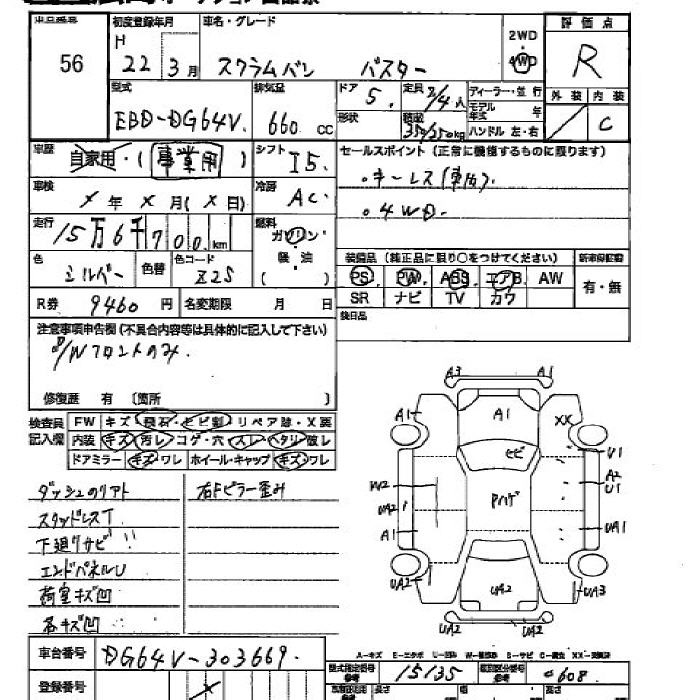 出品番号 初度登録年月 車名・グレード 評価点
56 H 22 3月 スクラムバン バスター 2WD 4WD R
型式 排気量 ドア 5. 定員 2/4人 ディーラー・並行 外装 内装
EBD-DG64V. 660 CC 形状 積載 350/250kg モデル年式 年 C
ハンドル 左・右
車歴 自家用・(事業用) シフト I5. セールスポイント(正常に機能するものに限ります)
車検 年 月(日) 冷房 AC. ・キーレス(車検).
走行 15万6千700km 燃料 ガソリン・軽油 ( ) ・4WD.
装備品(純正品に限り○をつけてください) 新車保証書
色 シルバー 色替 色コード Z2S PS PW ABS エアB AW 有・無
SR ナビ TV カワ
R券 9460円 名変期限 月 日 後日品
注意事項申告欄(不具合内容等は具体的に記入して下さい)
P/Wフロントのみ.
修復歴 有〔箇所 〕
検査員記入欄 FW キズ・飛石・ヒビ割・リペア跡・X要
内装 キズ・汚レ・コゲ・穴・スレ・ヘタリ・破レ
ドアミラー キズ・ワレ ホイール・キャップ キズ・ワレ
ダッシュのリアト 右Fピラー歪み
スタッドレスT
下廻りサビ!!
エンドパネルU
荷室キズ凹
各キズ凹
A3 A1
A1 A1 XX
ヒビ U1
W2 Pハゲ A2 U1
UA2
A1 UA1
UA2 UA2 UA3
UA2 UA2
A…キズ E…エクボ U…凹み W…補修跡 S…サビ C…腐食 XX…交換済
車台番号 DG64V-303669. 型式指定番号 15135 類別区分番号 608
登録番号 長さ 幅 高さ